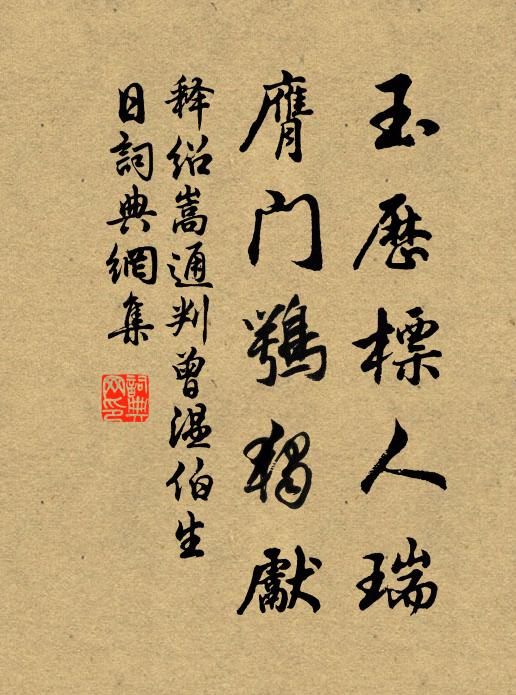 玉歷標人瑞
膺門鶚獨獻
释绍嵩通判曾温伯生
日詞典網集
詞典
网印